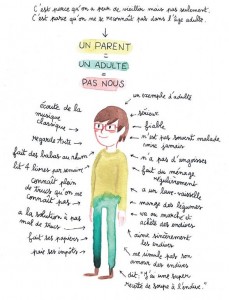 C'est parce qu'on a peur de vieillir mais pas seulement.
C'est parce qu'on ne se reconnaît pas dans l'âge adulte.
UN PARENT
=
UN ADULTE
=
PAS NOUS
un exemple d'adulte
Écoute de la
musique
classique
regarde Arte
fait des babas au rhum
lit 4 livres par semaine
connaît plein
de trucs qu'on ne
connaît pas
a la solution à pas
mal de trucs
fait ses papiers
paie ses impôts
sérieux
fiable
n'est pas souvent malade
voire jamais
n'a pas d'angoisses
fait du ménage
régulièrement
a un lave-vaisselle
mange des légumes
va au marché et
achète des endives
aime sincèrement
les endives
ne simule pas son
amour des endives
dit: "J'ai une super
recette de soupe à l'endive."